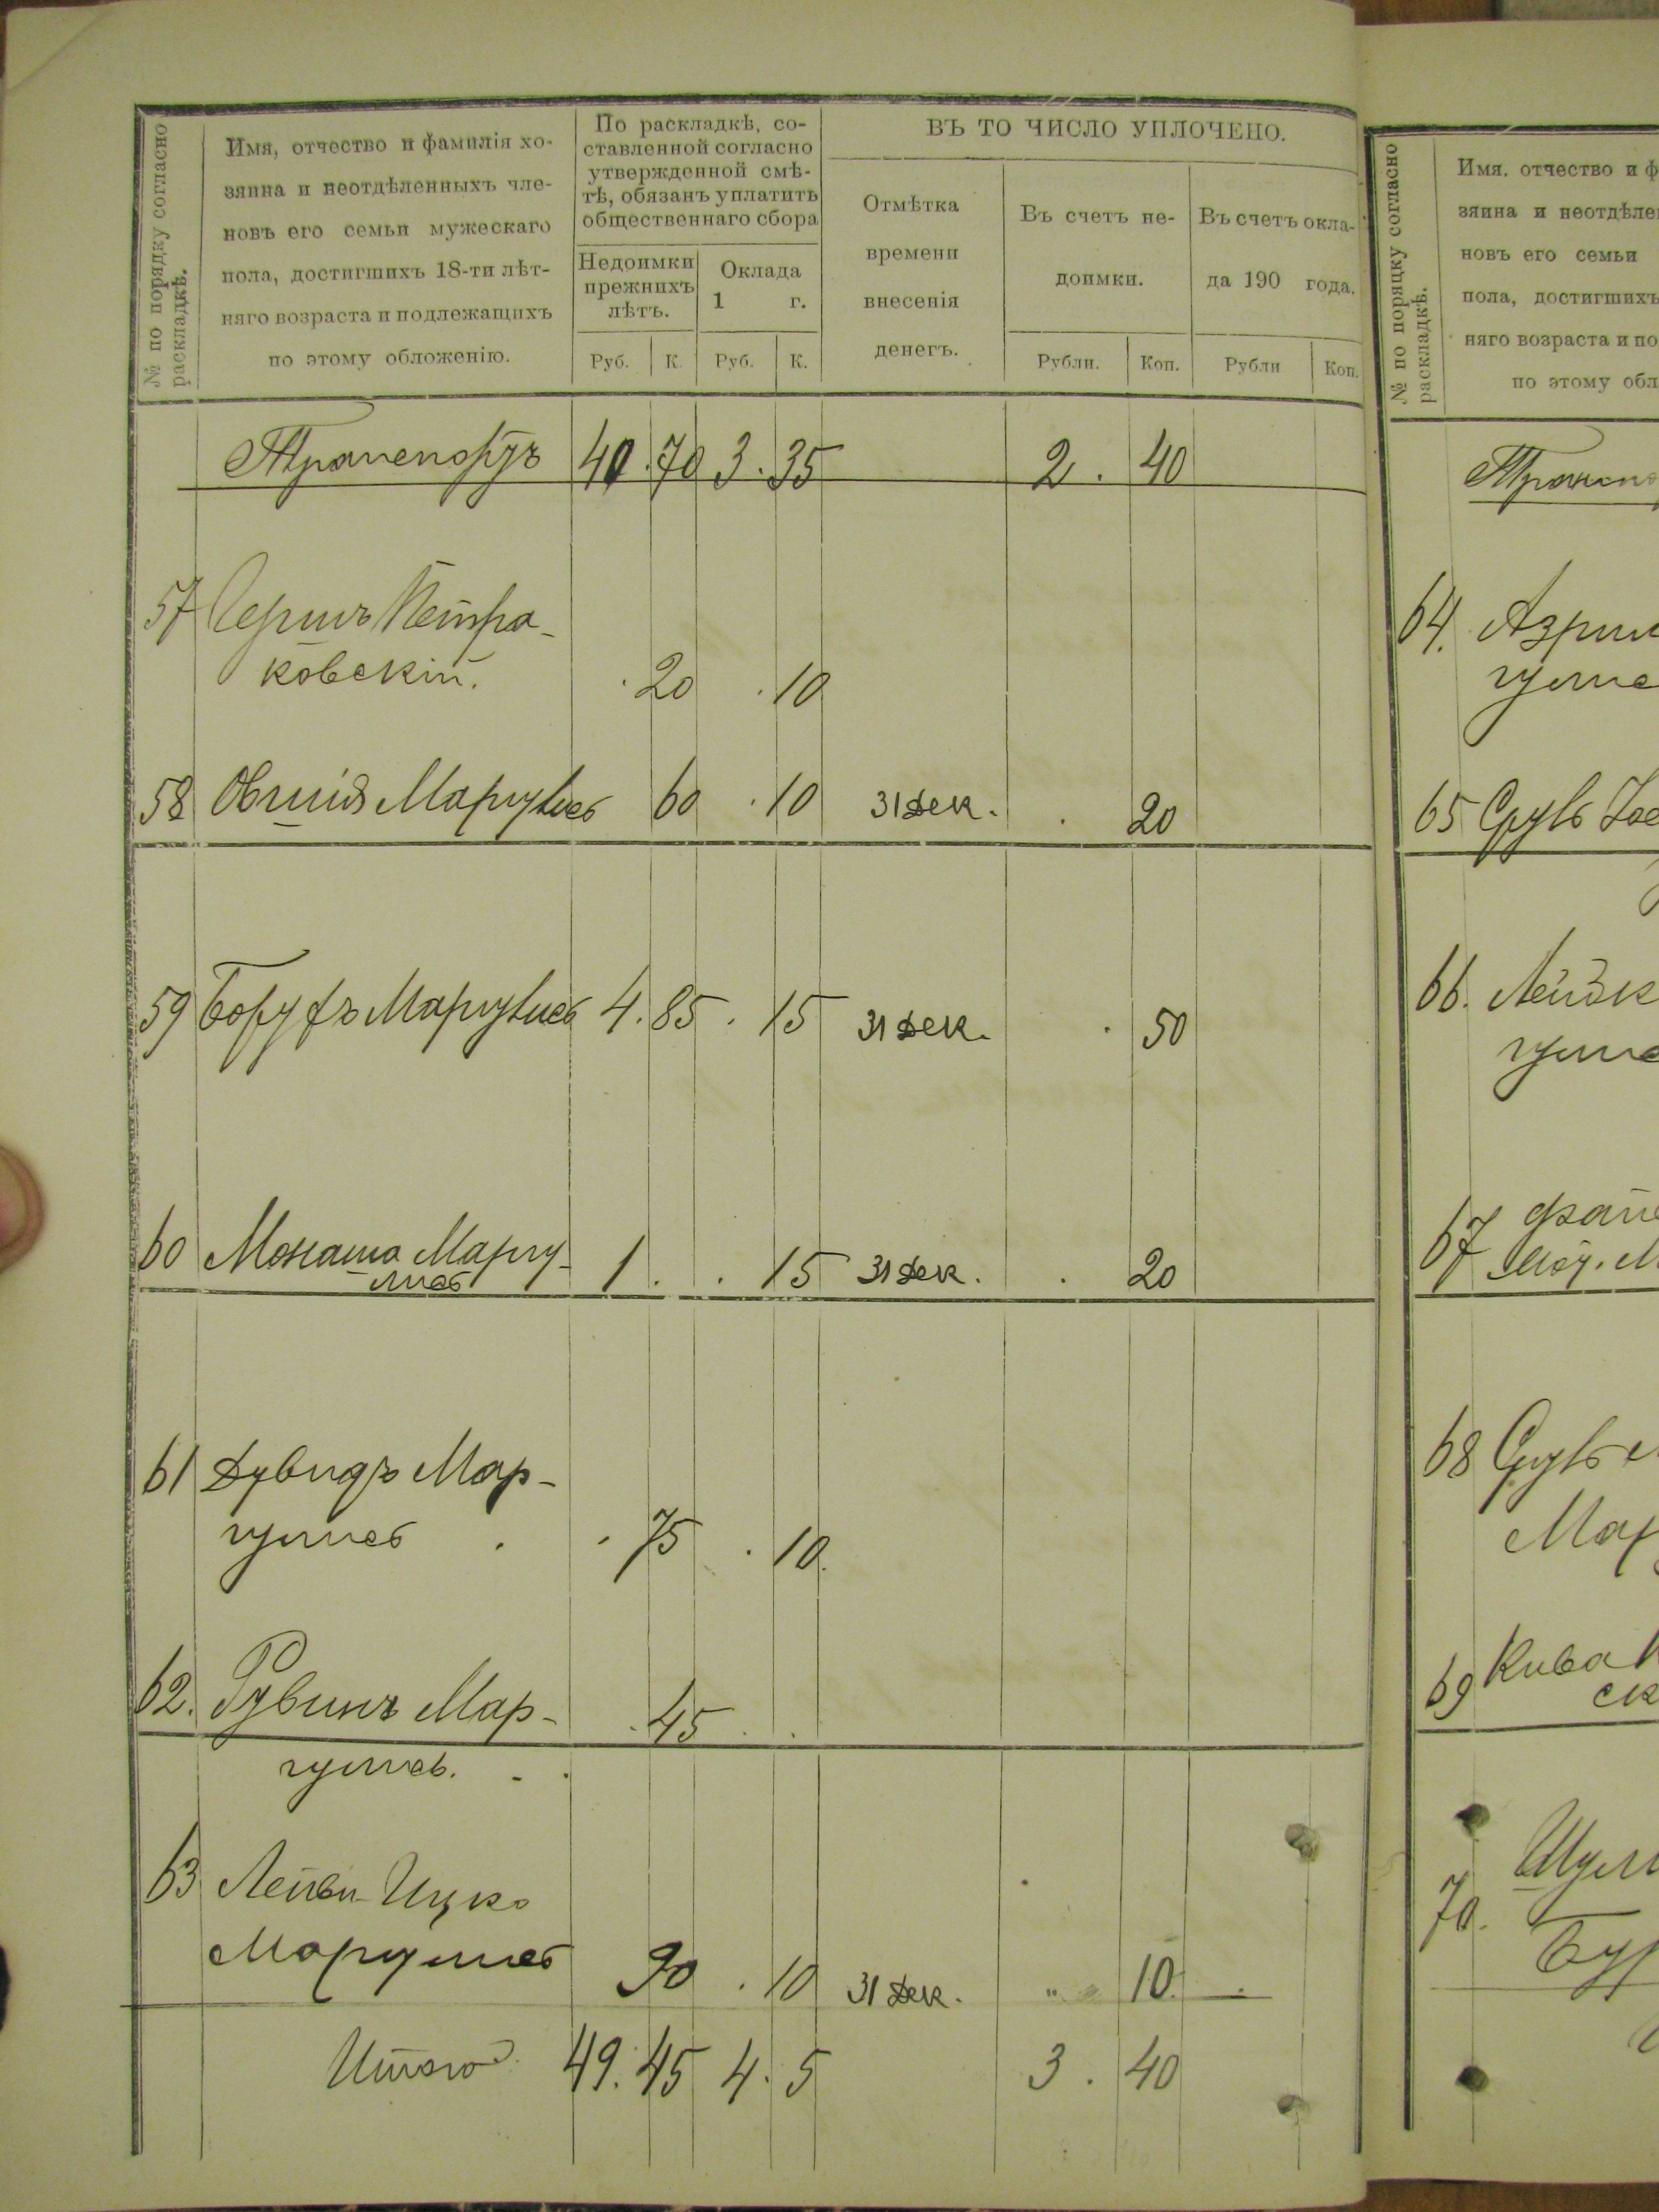 № по порядку согласно раскладкѣ.
Имя, отчество и фамилія хо-
зяина и неотдѣленныхъ чле-
новъ его семьи мужескаго
пола, достигшихъ 18-ти лѣт-
няго возраста и подлежащихъ
по этому обложенію.
По раскладкѣ, со-
ставленной согласно
утвержденной смѣ-
тѣ, обязанъ уплатить
общественнаго сбора
Недоимки
прежнихъ
лѣтъ.
Оклада
1 г.
Руб. К. Руб. К.
ВЪ ТО ЧИСЛО УПЛОЧЕНО.
Отмѣтка
времени
внесенія
денегъ.
Въ счетъ не-
доимки.
Рубли. Коп.
Въ счетъ окла-
да 190 года.
Рубли Коп.
Транспортъ 40.70 3.35 2. 40
57 Гершъ Петра-
ковскій. .20 .10
58 Овшія Маргулисъ 60 .10 31 Дек. . 20
59 Борухъ Маргулисъ 4.85 . 15 31 Дек. . 50
60 Монашъ Маргу-
лисъ 1. . 15 31 Дек. . 20
61 Дувидъ Мар-
гулисъ . 75 . 10.
62. Рувинъ Мар- . 45 . .
гулисъ. - .
63 Лейви Ицко
Маргулисъ 90 . 10 31 Дек. " 10. .
Итого 49.45 4. 5 3. 40
№ по порядку согласно раскладкѣ.
Имя. отчество и ф
зяина и неотдѣле
новъ его семьи
пола, достигшихъ
няго возраста и по
по этому обл
Транспо
64. Азрил
гулис
65 Сруль Іос
66. Лейзк
гулис
67
68 Сруль М
Мар
69 Кива
ск
70. Шул
Бур